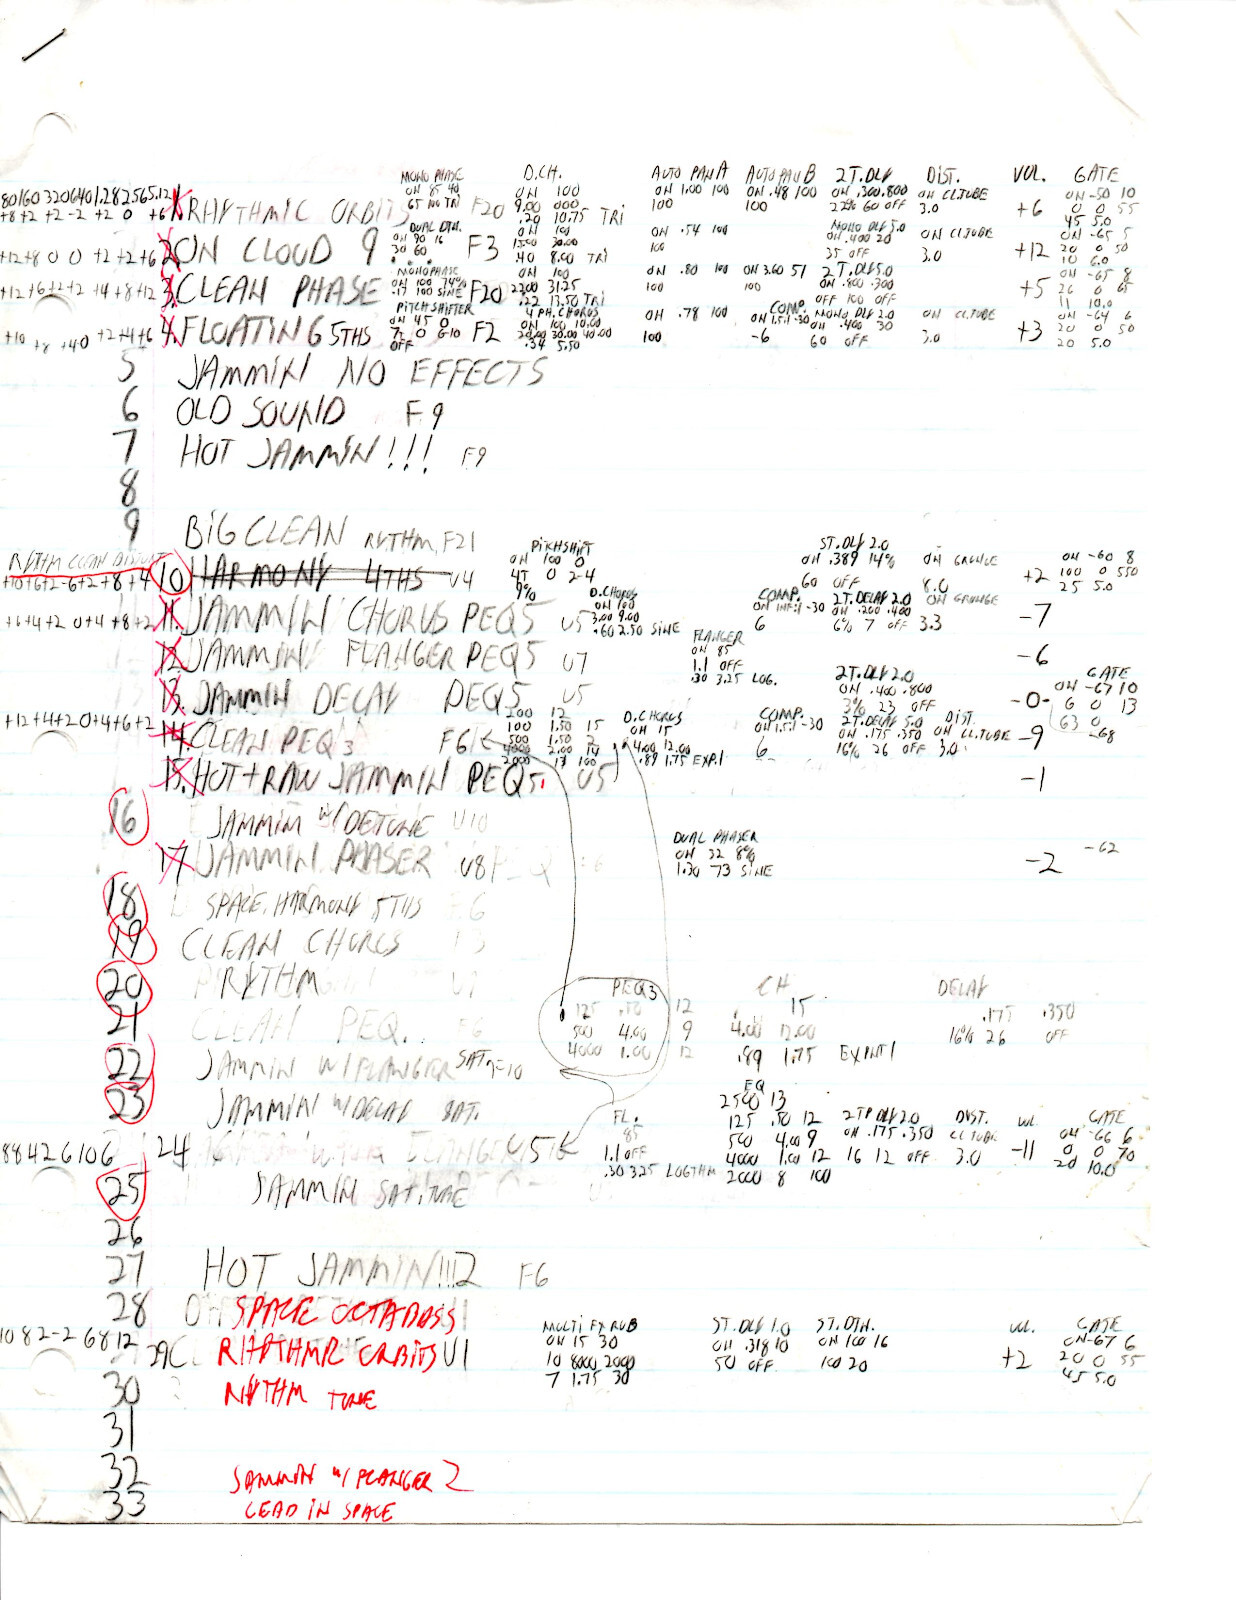 MONO PHASE D.CH. AUTO PAN A AUTO PAN B 2T.DLY DIST. VOL. GATE
80 160 320 640 1.28 2.56 5.12 ON 85 40 ON 100 ON 1.00 100 ON .48 100 ON .300 .800 ON CL.TUBE ON -50 10
+8 +2 +2 -2 +2 0 +6 1. RHYTHMIC ORBITS 65 TRI F20 9.00 .20 10.75 TRI 100 100 22% 60 OFF 3.0 +6 0 55
45 5.0
DUAL DTN. ON 100 ON .54 100 MONO DLY 5.0 ON CL.TUBE ON -65 5
+12 +8 0 0 +2 +2 +6 2. ON CLOUD 9 ON 90 16 F3 30.00 100 ON .400 20 3.0 +12 20 0 50
30 60 .40 8.00 TRI 35 OFF 10 6.0
MONOPHASE ON 100 ON .80 100 ON 3.60 51 2T.DLY 5.0 ON -65 8
+12 +6 +2 +2 +4 +8 +12 3. CLEAN PHASE ON 100 74% F20 31.25 100 100 ON .800 .300 +5 26 0 65
.17 100 SINE .22 13.50 TRI OFF 100 OFF 11 10.0
PITCH SHIFTER 4 PH. CHORUS ON .78 100 COMP. MONO DLY 2.0 ON CL.TUBE ON -64 6
+10 +8 +4 0 +2 +4 +6 4. FLOATING 5THS ON 45 0 F2 ON 100 10.00 100 ON 1.5:1 -30 ON .400 30 3.0 +3 20 0 50
OFF 20.00 30.00 40.00 -6 60 OFF 20 5.0
.34 5.50
5 JAMMIN NO EFFECTS
6 OLD SOUND F9
7 HOT JAMMIN!!! F9
8
9 BIG CLEAN RYTHM, F21
RYTHM CLEAN PITCHSHIFT ST.DLY 2.0
+10 +6 +2 -6 +2 +8 +4 10 HARMONY 4THS U4 ON 100 0 ON .389 14% ON GRUNGE +2 ON -60 8
4T 0 24 60 OFF 8.0 100 0 550
9% 25 5.0
D.CHORUS COMP. 2T.DELAY 2.0 ON GRUNGE
+6 +4 +2 0 +4 +8 +2 11. JAMMIN CHORUS PEQ5 U5 ON 100 ON INF:1 -30 ON .200 .400 -7
3.00 9.00 6 6% 7 OFF 3.3
.60 2.50 SINE
12. JAMMIN FLANGER PEQ5 U7 FLANGER -6
ON 85
1.1 OFF
.30 3.25 LOG.
13. JAMMIN DELAY PEQ5 U5 2T.DLY 2.0 -0- GATE
ON .400 .800 ON -67 10
3% 23 OFF 6 0 13
63 0
+12 +4 +2 0 +4 +6 +2 14. CLEAN PEQ3 F6 200 12 D.CHORUS COMP. 2T.DELAY 5.0 DIST. -9 -68
100 1.50 15 ON 15 ON 1.5:1 -30 ON .175 .350 ON CL.TUBE
500 1.50 2 4.00 12.00 6 16% 26 OFF 3.0
4000 2.00 14 .89 1.75 EXP.1
2000 17 100
15. HOT + RAW JAMMIN PEQ5. U5 -1
16 JAMMIN W/DETUNE U10
17 JAMMIN PHASER U8 DUAL PHASER -2 -62
ON 32 8%
1.30 73 SINE
18 SPACE HARMONY 5THS F6
19 CLEAN CHORUS
20 RYTHM
PEQ3 CH DELAY
21 CLEAN PEQ. 125 .50 12 15 .175 .350
500 4.00 9 4.00 12.00 16% 26 OFF
4000 1.00 12 .89 1.75 EXPNT 1
22 JAMMIN W/FLANGER SAT
23 JAMMIN W/DELAY SAT.
EQ
2500 13
FL. 125 .50 12 2TP DLY 2.0 DIST. VOL. GATE
8 8 4 2 6 10 6 24 FLANGER U5 85 500 4.00 9 ON .175 .350 CL TUBE -11 ON -66 6
1.1 OFF 4000 1.00 12 16 12 OFF 3.0 0 0 70
.30 3.25 LOGTHM 2000 8 100 20 10.0
25 JAMMIN SAT. TUBE
26
27 HOT JAMMIN!!! 2 F6
28 SPACE OCTABASS
MULTI FX RUB ST.DLY 1.0 ST.DTN. VOL. GATE
10 8 2 -2 6 8 12 29 RHYTHMR ORBITS U1 ON 15 30 ON .318 10 ON 100 16 +2 ON -67 6
10 8000 2000 50 OFF 100 20 20 0 55
7 1.75 30 45 5.0
30 RYTHM TUBE
31
32 JAMMIN W/ FLANGER 2
33 LEAD IN SPACE